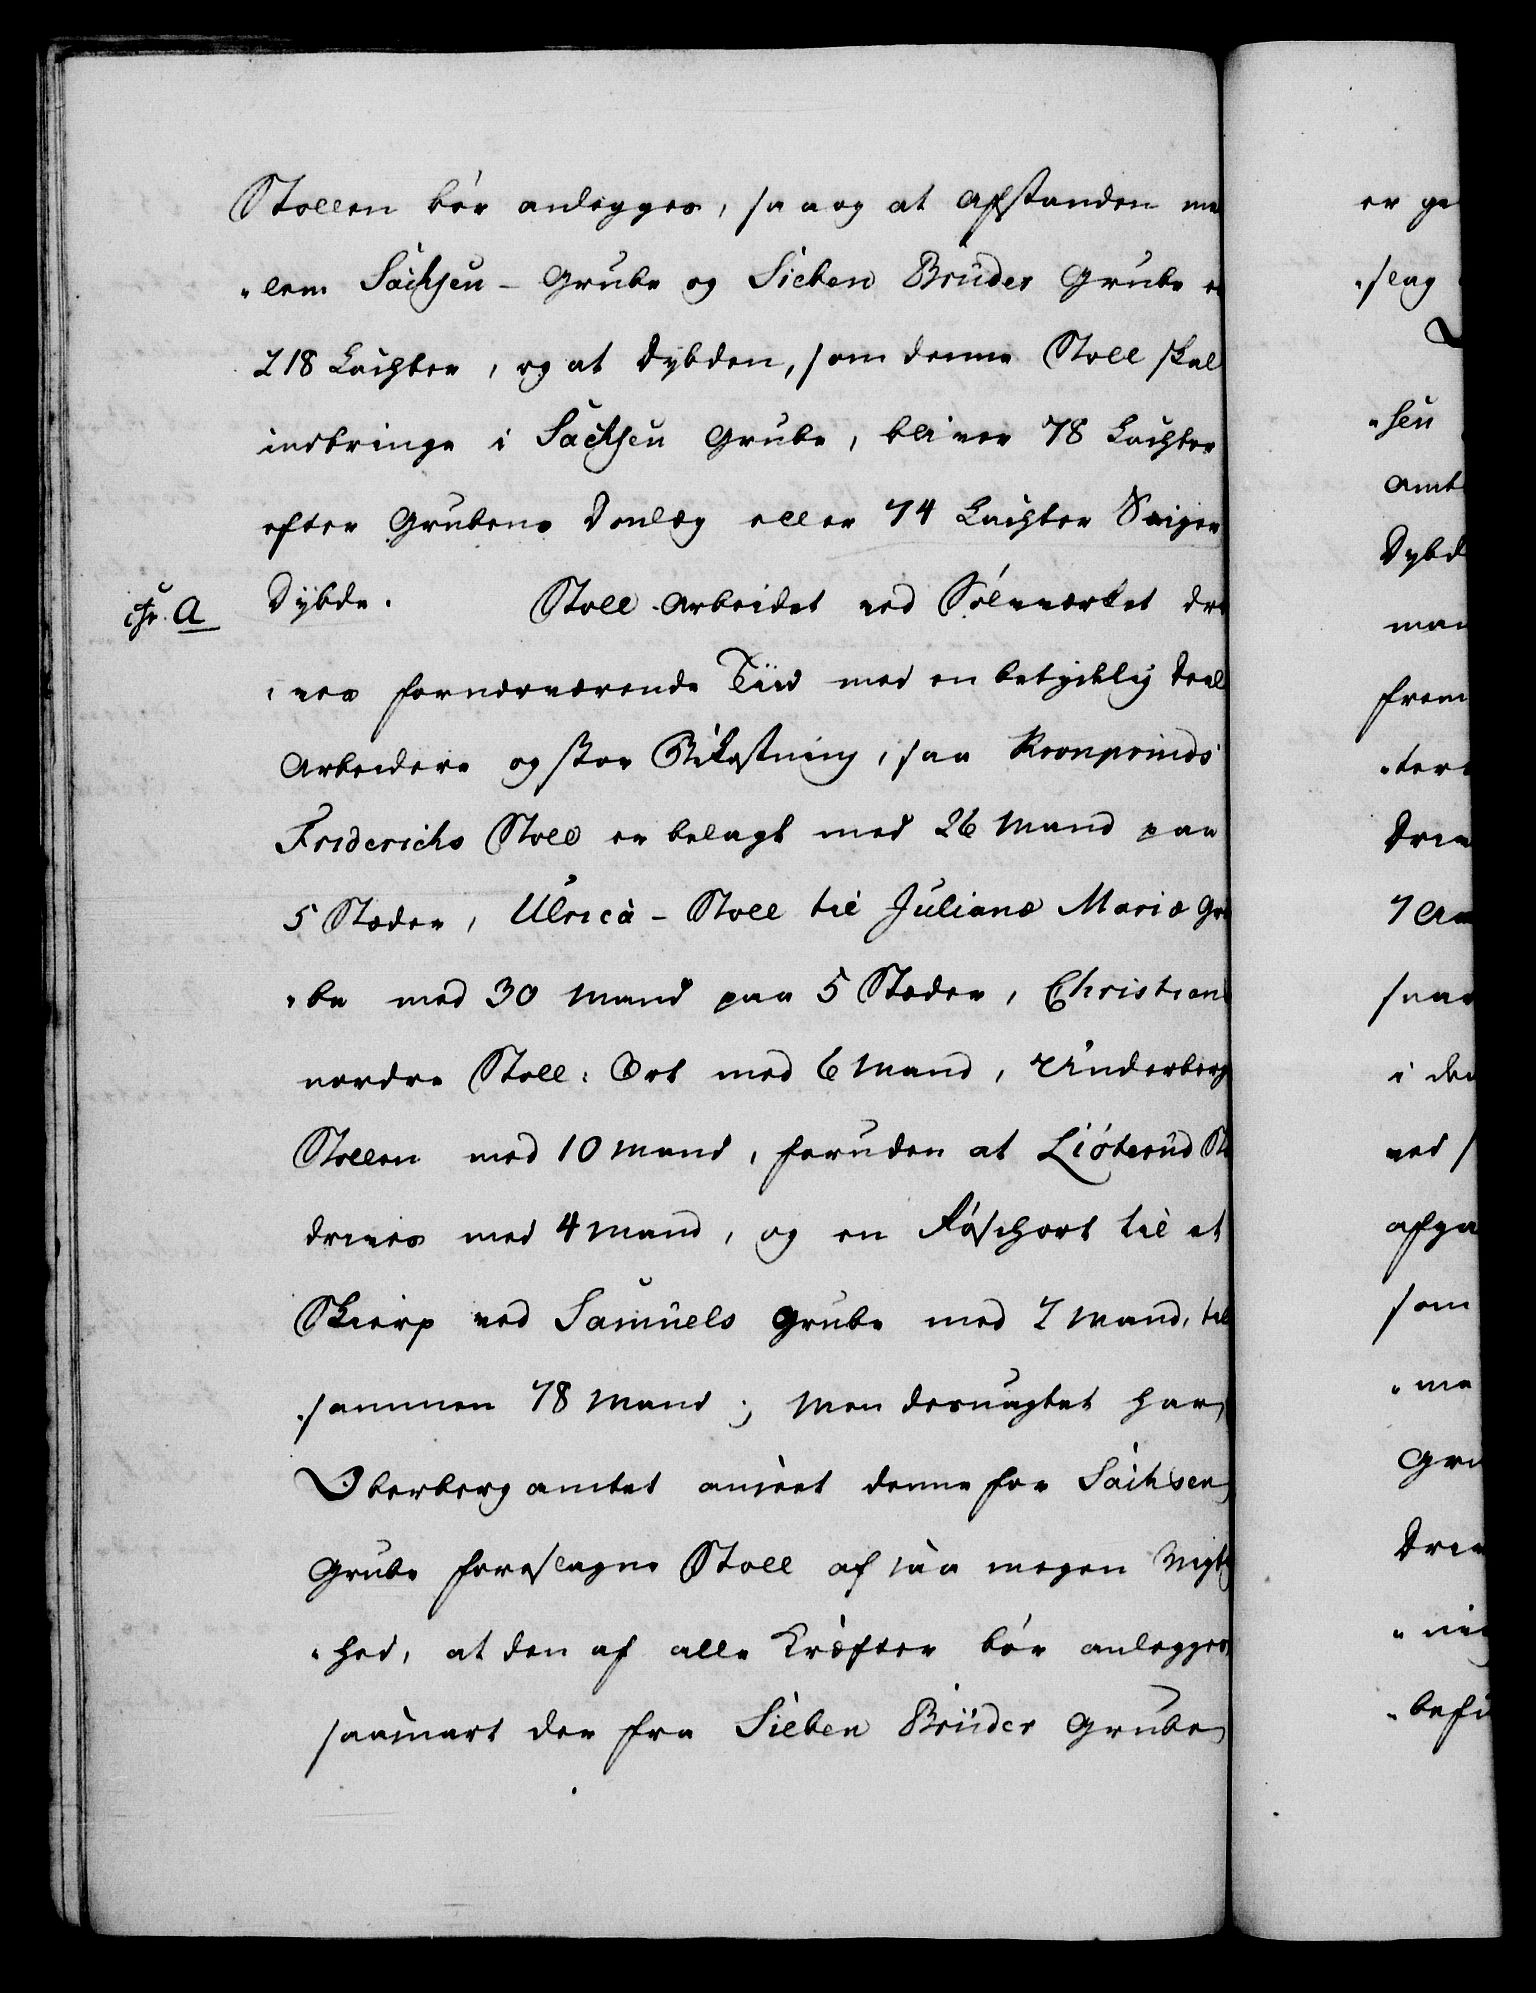 Stollen bør anlegges, saa og at Afstanden me
„lem Sachsen - Grube og Sieben Brüder Grube e
218 Lachter, og at Dybden, som denne Stoll skal
indbringe i Sachsen Grube, bliver 78 Lachter
efter Grubens Donlæg eller 74 Lachter Seiger
Dybde. Stoll-Arbeidet ved Sølvværket dri
cfr. A
„ves fornærværende Tiid med en betydelig Deel
Arbeidere og stor Bekostning, saa Kronprinds
Friderichs Stoll er belagt med 26 Mand paa
5 Stæder, Ulrica - Stoll til Juliane Mariæ Gru
„be med 30 Mand paa 5 Stæder, Christians
nordre Stoll-Ort med 6 Mand, Underbergs
Stollen med 10 Mand, foruden at Liøterud St
drives med 4 Mand, og en Røschort til et
Skierp ved Samuels Grube med 2 Mand, til
sammen 78 Mand; Men desuagtet har
Oberbergamtet anseet denne for Sachsen
Grube foreslagne Stoll af saa megen Vigtig
„hed, at den af alle Kræfter bør anlegges,
saasnart der fra Sieben Brüder Grube
er ge
„slag
„sen
Amt
Dybd
man
frem
„ter
Driv
saa
i den
ved s
afga
som
„me
Gru
Driv
„ni
„befi